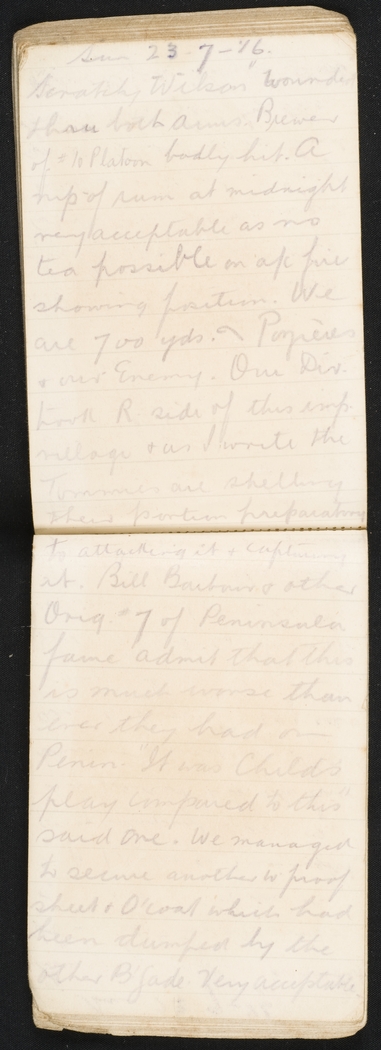 Sun 23-7-16.
"Scratchy Wilson" wounded
thru both arms. Brewer
of #10 Platoon badly hit. A
nip of rum at midnight
very acceptable as no
tea possible on a/c fire
showing position. We
are 700 yds. Pozières
& our Enemy. Our Div.
took R. side of this imp.
village & as I write the
Tommies are shelling
their portion preparatory
to attacking it & capturing
it. Bill & other
Orig. #7 of Peninsula
fame admit that this
is much worse than
ever they had on
Penin. "It was Child's
play compared to this"
said one. We managed
to secure another w'proof
sheet & O'coat which had
been dumped by the
other B'gade. Very acceptable